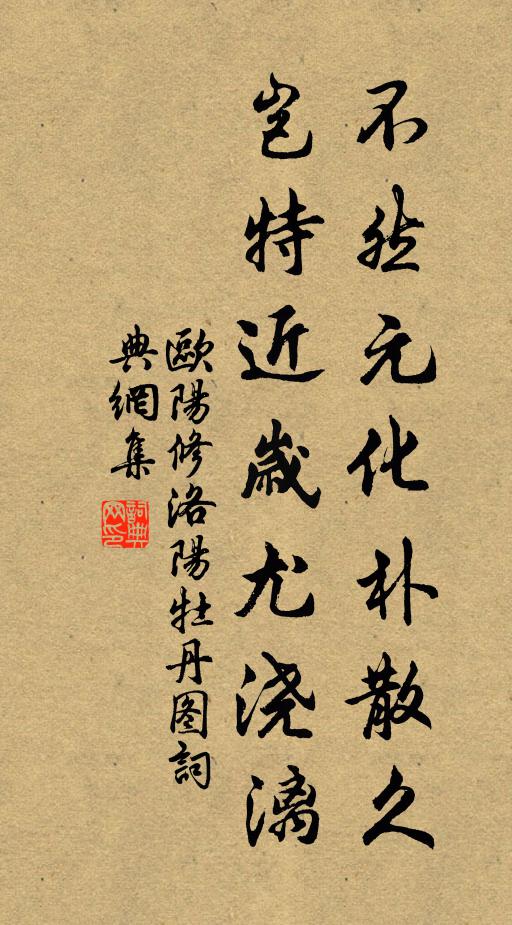 不然元化朴散久
岂特近歲尤浇漓
歐陽修洛陽牡丹图詞
典網集
詞典網印